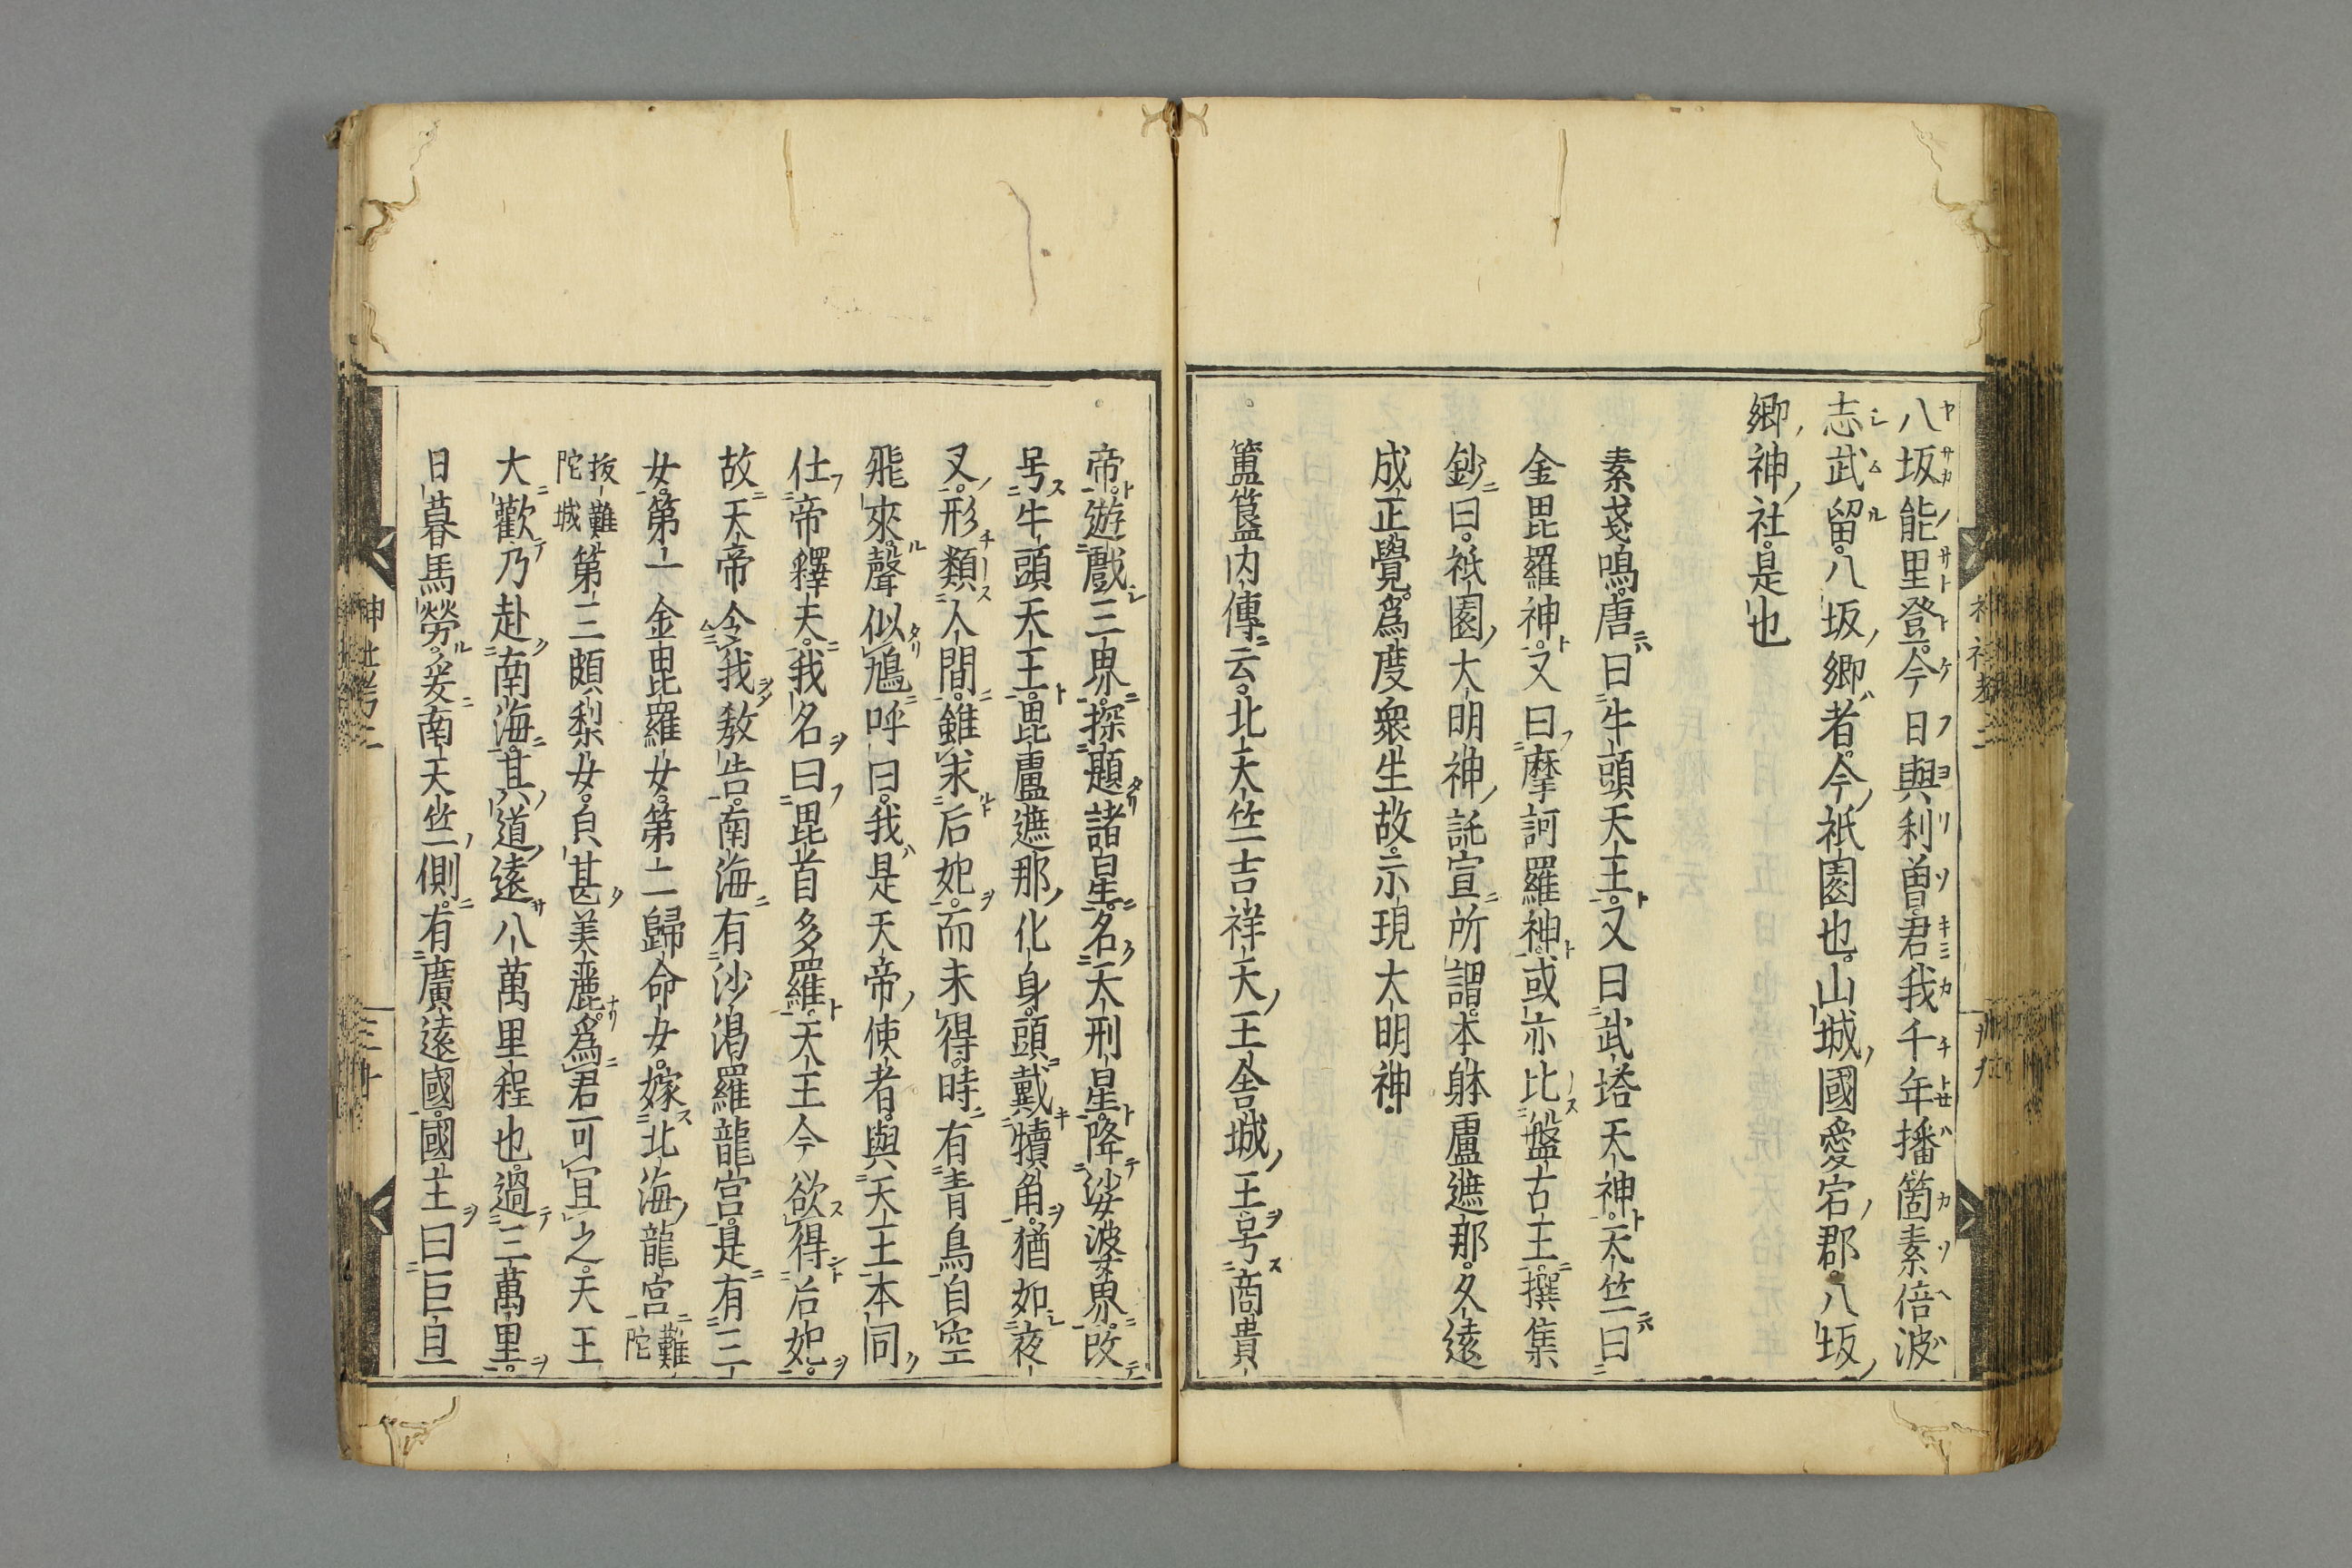 八坂能里登今日與利曽君我千年播箇素倍波
志武留八坂郷者今祇園也山城國愛宕郡八坂
郷神社是也
素戔嗚唐曰牛頭天王又曰武塔天神天竺曰
金毘羅神又曰摩訶羅神或亦比盤古王撰集
鈔曰祇園大明神託宣所謂本躰盧遮那久遠
成正覺爲度衆生故示現大明神
簠簋内傳云北天竺吉祥天王舍城王号商貴
帝遊戲三界探題諸星名天刑星降娑婆界改
号牛頭天王毘盧遮那化身頭戴犢角猶如夜
叉形類人間雖求后妃而未得時有青鳥自空
飛來聲似鳩呼曰我是天帝使者與天王本同
仕帝釋夫我名曰毘首多羅天王今欲得后妃
故天帝令我教告南海有沙渴羅龍宮是有三
女第一金毘羅女第二歸命女嫁北海龍宮難陀
拔難陀城第三頗梨女貞甚美麗爲君可冝之天王
大歡乃赴南海其道遠八萬里程也過三萬里
日暮馬勞爰南天竺側有廣遠國國主曰巨旦
神社考二
三十